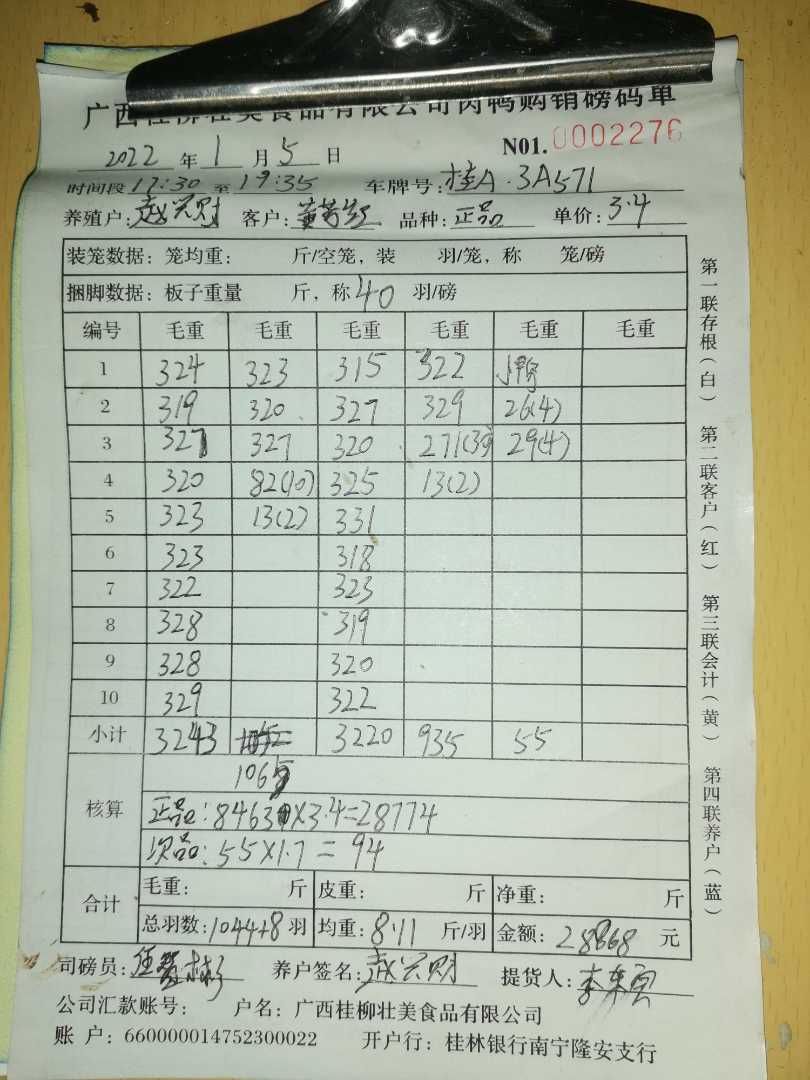 广西桂柳壮美食品有限公司肉鸭购销磅码单
2022 年 1 月 5 日 N01. 0002276
时间段 17:30 至 19:35 车牌号: 桂A·3A571
养殖户: 赵兴财 客户: 品种: 正品 单价: 3.4
装笼数据: 笼均重: 斤/空笼, 装 羽/笼, 称 笼/磅
捆脚数据: 板子重量 斤, 称 40 羽/磅
编号 毛重 毛重 毛重 毛重 毛重 毛重
1 324 323 315 322
2 319 320 327 329 26(4)
3 327 327 320 271(39) 29(4)
4 320 82(10) 325 13(2)
5 323 13(2) 331
6 323 318
7 322 323
8 328 319
9 328 320
10 329 322
小计 3243 3220 935 55
1065
核算
正品: 8463 ×3.4=28774
次品: 55×1.7=94
合计 毛重: 斤 皮重: 斤 净重: 斤
总羽数: 1044+8 羽 均重: 8.11 斤/羽 金额: 28868 元
司磅员: 养户签名: 赵兴财 提货人:
公司汇款账号: 户名: 广西桂柳壮美食品有限公司
账 户: 660000014752300022 开户行: 桂林银行南宁隆安支行
第一联存根(白) 第二联客户(红) 第三联会计(黄) 第四联养户(蓝)